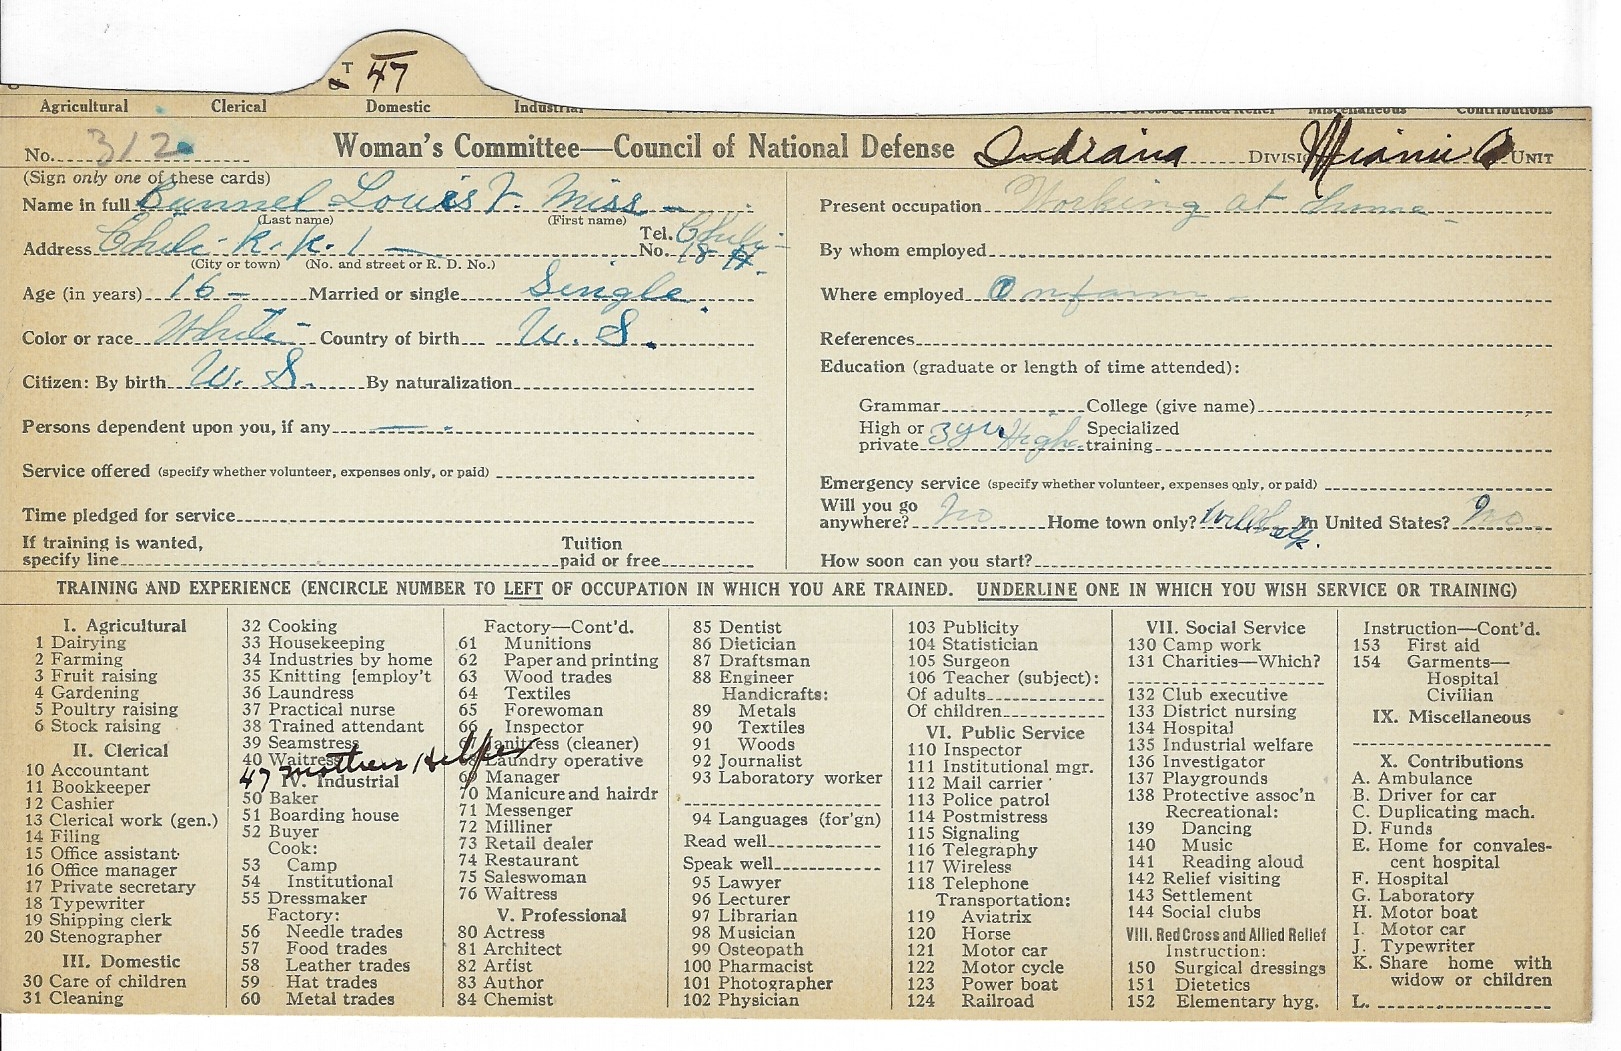 T 47
Agricultural Clerical Domestic Industrial Miscellaneous Contributions
No. 312 Woman's Committee—Council of National Defense Indiana DIVISION Miami UNIT
(Sign only one of these cards)
Name in full Bunnel Louis F. Miss
(Last name) (First name)
Address Chili R. R. 1 Tel. No. Chili 18-H.
(City or town) (No. and street or R. D. No.)
Age (in years) 16 Married or single Single
Color or race White Country of birth U. S.
Citizen: By birth U. S. By naturalization
Persons dependent upon you, if any —
Service offered (specify whether volunteer, expenses only, or paid)
Time pledged for service
If training is wanted, specify line Tuition paid or free
Present occupation Working at home
By whom employed
Where employed On farm
References
Education (graduate or length of time attended):
Grammar College (give name)
High or private 3 yr. High Specialized training
Emergency service (specify whether volunteer, expenses only, or paid)
Will you go anywhere? No Home town only? Will help. In United States? No
How soon can you start?
TRAINING AND EXPERIENCE (ENCIRCLE NUMBER TO LEFT OF OCCUPATION IN WHICH YOU ARE TRAINED. UNDERLINE ONE IN WHICH YOU WISH SERVICE OR TRAINING)
I. Agricultural
1 Dairying
2 Farming
3 Fruit raising
4 Gardening
5 Poultry raising
6 Stock raising
II. Clerical
10 Accountant
11 Bookkeeper
12 Cashier
13 Clerical work (gen.)
14 Filing
15 Office assistant
16 Office manager
17 Private secretary
18 Typewriter
19 Shipping clerk
20 Stenographer
III. Domestic
30 Care of children
31 Cleaning
32 Cooking
33 Housekeeping
34 Industries by home
35 Knitting [employ't
36 Laundress
37 Practical nurse
38 Trained attendant
39 Seamstress
40 Waitress
47 Mothers Helper
IV. Industrial
50 Baker
51 Boarding house
52 Buyer
Cook:
53 Camp
54 Institutional
55 Dressmaker
Factory:
56 Needle trades
57 Food trades
58 Leather trades
59 Hat trades
60 Metal trades
Factory—Cont'd.
61 Munitions
62 Paper and printing
63 Wood trades
64 Textiles
65 Forewoman
66 Inspector
67 Janitress (cleaner)
68 Laundry operative
69 Manager
70 Manicure and hairdr
71 Messenger
72 Milliner
73 Retail dealer
74 Restaurant
75 Saleswoman
76 Waitress
V. Professional
80 Actress
81 Architect
82 Artist
83 Author
84 Chemist
85 Dentist
86 Dietician
87 Draftsman
88 Engineer
Handicrafts:
89 Metals
90 Textiles
91 Woods
92 Journalist
93 Laboratory worker
94 Languages (for'gn)
Read well
Speak well
95 Lawyer
96 Lecturer
97 Librarian
98 Musician
99 Osteopath
100 Pharmacist
101 Photographer
102 Physician
103 Publicity
104 Statistician
105 Surgeon
106 Teacher (subject):
Of adults
Of children
VI. Public Service
110 Inspector
111 Institutional mgr.
112 Mail carrier
113 Police patrol
114 Postmistress
115 Signaling
116 Telegraphy
117 Wireless
118 Telephone
Transportation:
119 Aviatrix
120 Horse
121 Motor car
122 Motor cycle
123 Power boat
124 Railroad
VII. Social Service
130 Camp work
131 Charities—Which?
132 Club executive
133 District nursing
134 Hospital
135 Industrial welfare
136 Investigator
137 Playgrounds
138 Protective assoc'n
Recreational:
139 Dancing
140 Music
141 Reading aloud
142 Relief visiting
143 Settlement
144 Social clubs
VIII. Red Cross and Allied Relief
Instruction:
150 Surgical dressings
151 Dietetics
152 Elementary hyg.
Instruction—Cont'd.
153 First aid
154 Garments—
Hospital
Civilian
IX. Miscellaneous
X. Contributions
A. Ambulance
B. Driver for car
C. Duplicating mach.
D. Funds
E. Home for convales-
cent hospital
F. Hospital
G. Laboratory
H. Motor boat
I. Motor car
J. Typewriter
K. Share home with
widow or children
L.